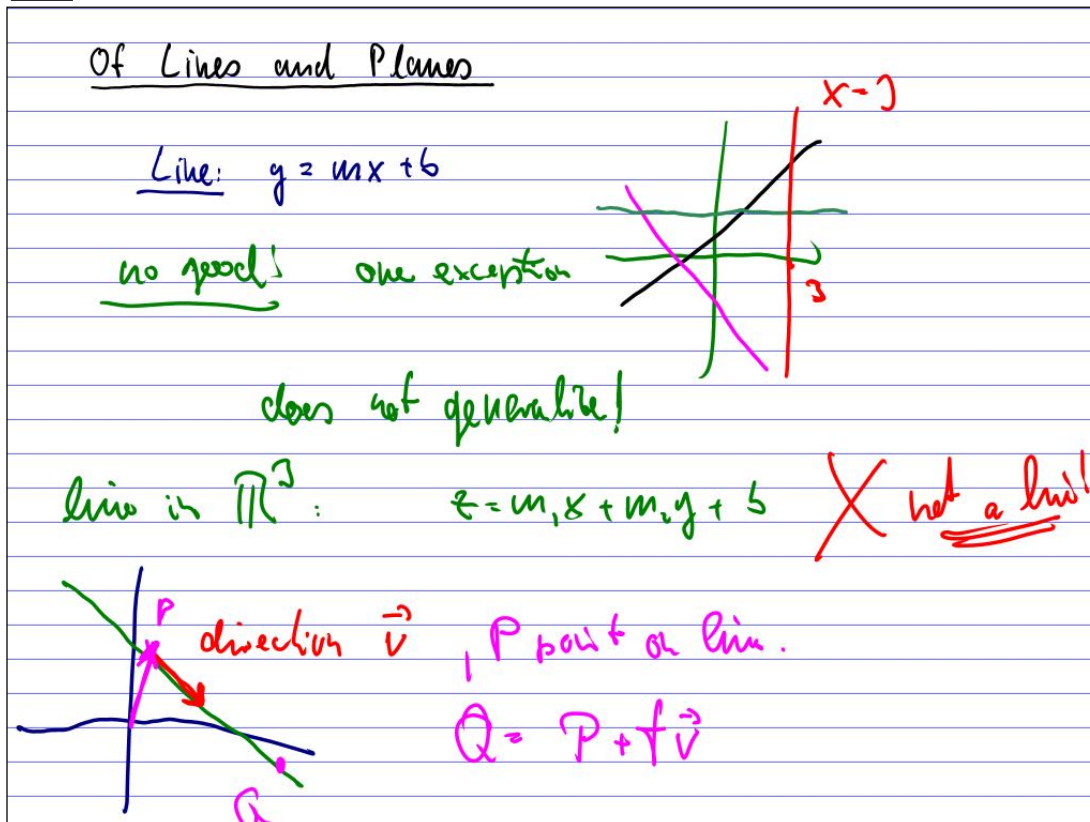 Of Lines and Planes
x = 3
Line: y = mx + b
no good! one exception
3
does not generalize!
line in ℝ³: z = m₁x + m₂y + b not a line!
P
direction v⃗, P point on line.
Q = P + t v⃗
Q